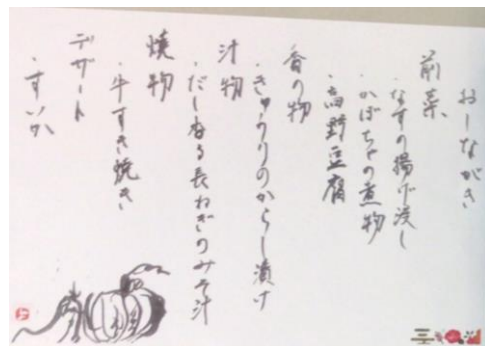 おしながき
前菜
・なすの揚げ浸し
・かぼちゃの煮物
・高野豆腐
香の物
・きゅうりのからし漬け
汁物
・だし香る長ねぎのみそ汁
焼物
・牛すき焼き
デザート
・すいか